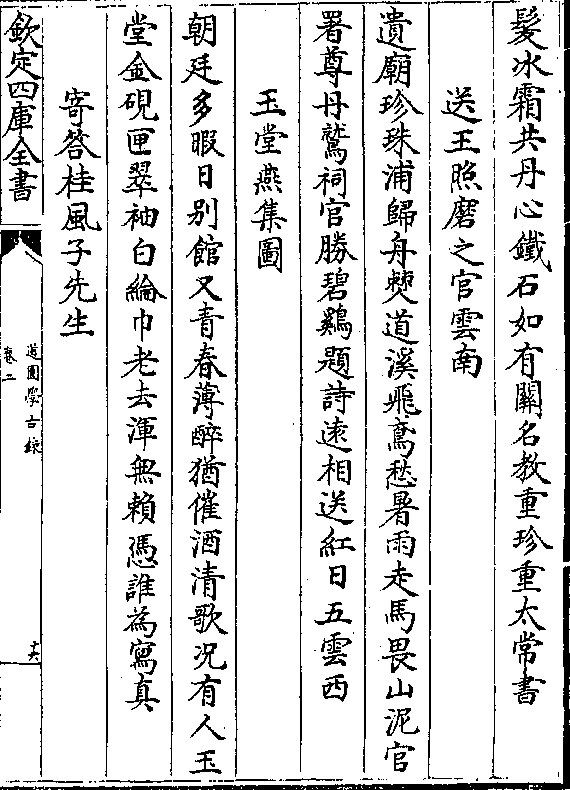 髮冰霜共丹心鐵石如有關名教重珍重太常書
送王照磨之官雲南
遺廟珍珠浦歸舟僰道溪飛鳶愁暑雨走馬畏山泥官
署尊丹鷲祠官勝碧鷄題詩遠相送紅日五雲西
玉堂燕集圖
朝廷多暇日别館又青春薄醉猶催酒清歌况有人玉
堂金硯匣翠袖白綸巾老去渾無賴憑誰為寫真
寄答桂風子先生
欽定四庫全書
道園學古錄
卷二
十六